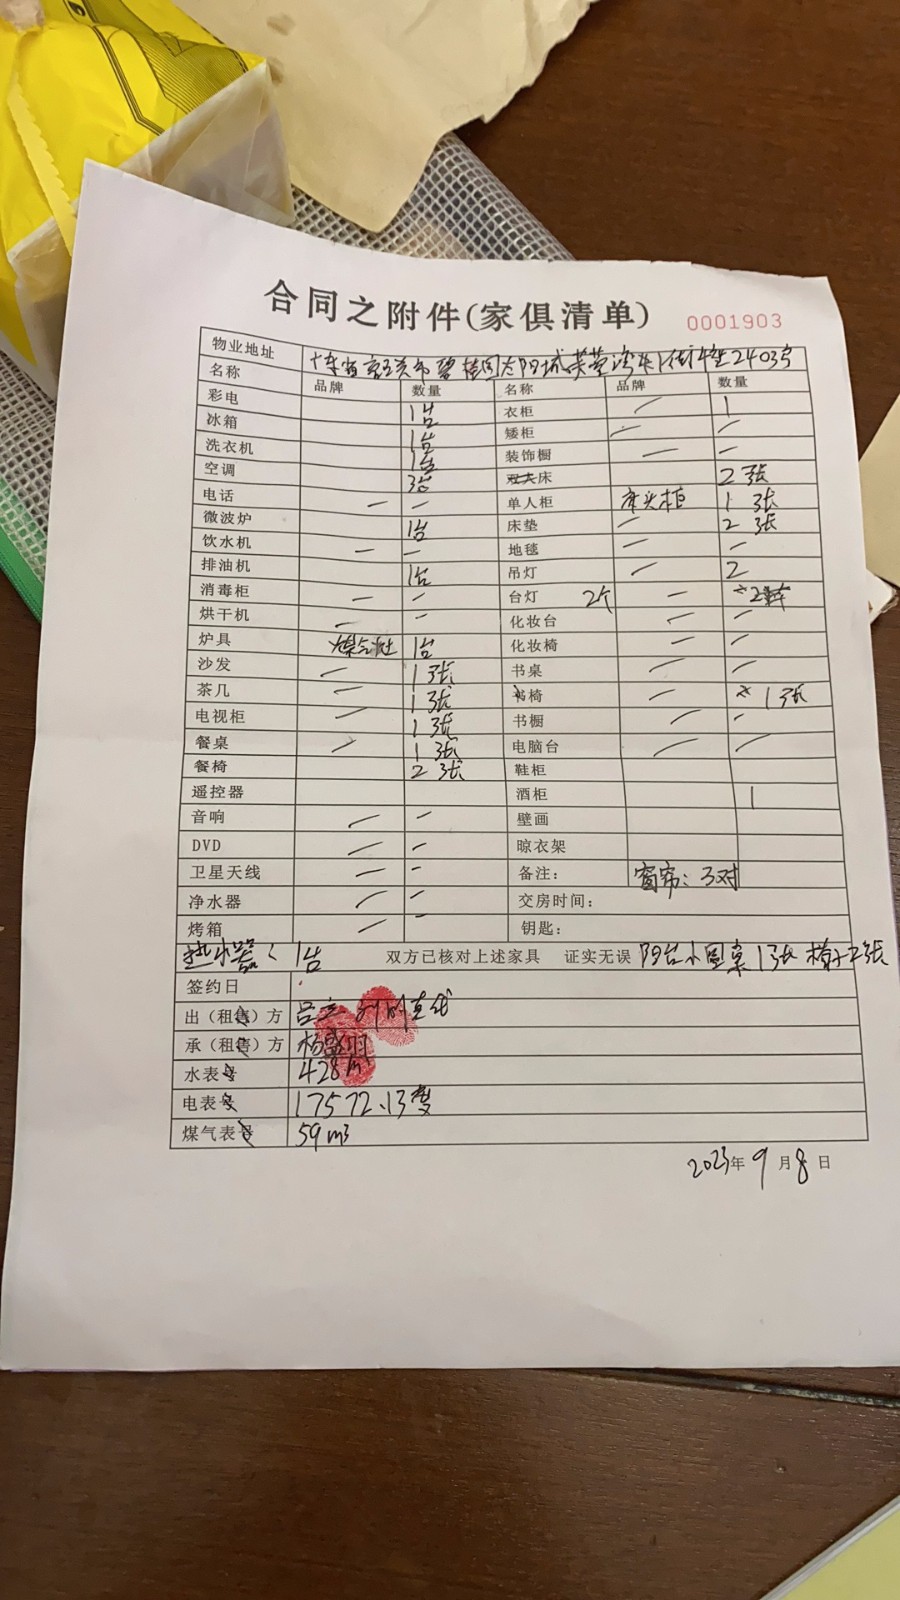 合同之附件(家俱清单) 0001903
物业地址 广东省韶关市碧桂园太阳城芙蓉湾 街 2403号
名称 品牌 数量 名称 品牌 数量
彩电 1台 衣柜 1
冰箱 1台 矮柜
洗衣机 1台 装饰橱
空调 3台 床 2张
电话 单人柜 床头柜 1张
微波炉 1台 床垫 2张
饮水机 地毯
排油机 1台 吊灯 2
消毒柜 台灯 2个
烘干机 化妆台
炉具 煤气灶 1台 化妆椅
沙发 1张 书桌
茶几 1张 书椅 1张
电视柜 1张 书橱
餐桌 1张 电脑台
餐椅 2张 鞋柜
遥控器 酒柜 1
音响 壁画
DVD 晾衣架
卫星天线 备注： 窗帘：3对
净水器 交房时间：
烤箱 钥匙：
热水器：1台 双方已核对上述家具 证实无误 阳台小圆桌1张 椅子2张
签约日
出（租售）方
承（租售）方 杨盛羽
水表号 428m
电表号 17572.13度
煤气表号 59m3
2023年9月8日